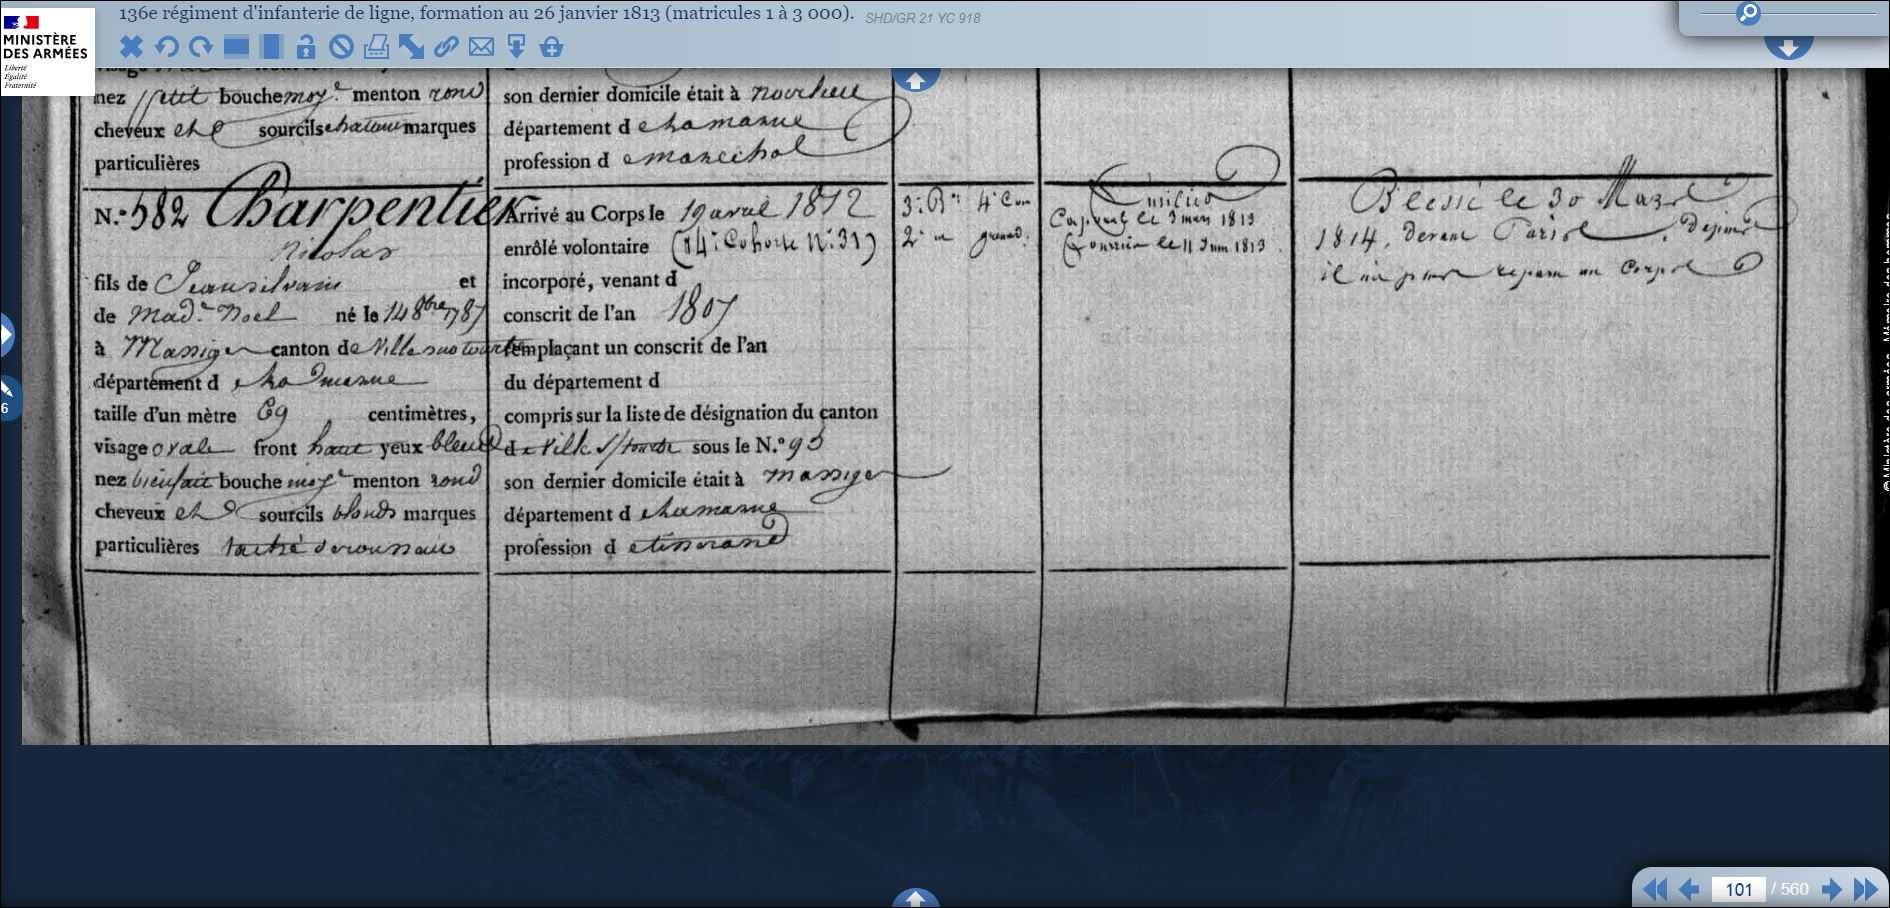 136e régiment d'infanterie de ligne, formation au 26 janvier 1813 (matricules 1 à 3 000). SHD/GR 21 YC 918
MINISTÈRE
DES ARMÉES
Liberté
Égalité
Fraternité
nez petit bouche moy.e menton rond
cheveux et S sourcils chatains marques
particulières
son dernier domicile était à
département de hamarne
profession de marechal
N.º 582 Charpentier
Nicolas
fils de Jean silvain et
de Mad.e Noel né le 14 8bre 1787
à Massiges canton de Ville sus tourbe
département de la marne
taille d'un mètre 69 centimètres,
visage ovale front haut yeux bleus
nez bienfait bouche moy.e menton rond
cheveux et S sourcils blonds marques
particulières taché de rousseur
Arrivé au Corps le 19 avril 1812
enrôlé volontaire (14e Cohorte N.º 31)
incorporé, venant d
conscrit de l'an 1807
remplaçant un conscrit de l'an
du département d
compris sur la liste de désignation du canton
de Ville s/ tourbe sous le N.º 95
son dernier domicile était à Massiges
département de la marne
profession de tisserand
3e Bon 4e Com
2e id grenad.
Fusilier
Caporal le 3 mars 1813
Fourrier le 11 Juin 1813
Blessé le 30 Mars
1814, devant Paris, depuis
il n'a point reparu au Corps
© Ministère des armées - Mémoire des hommes
6
101 / 560